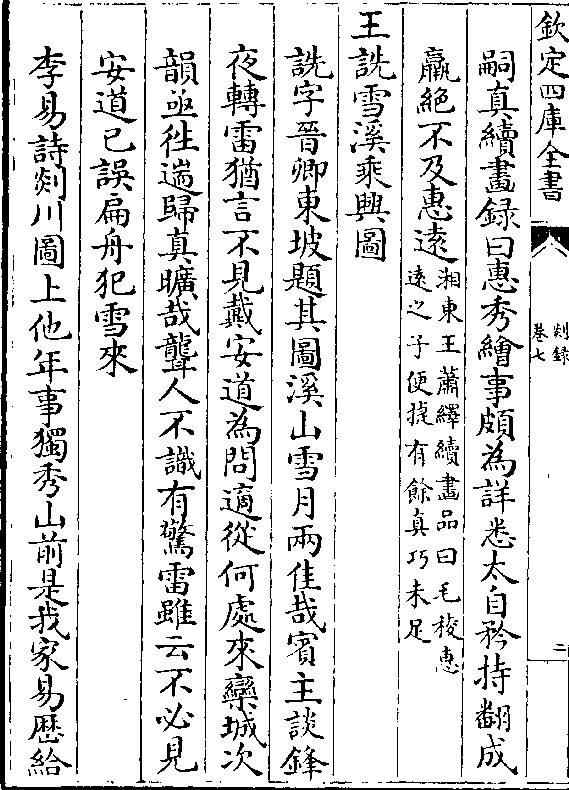 欽定四庫全書
剡録
卷七
二
嗣真續畫録曰惠秀繪事頗為詳悉太自矜持翻成
羸絶不及惠逺湘東王蕭繹續畫品曰毛稜惠
逺之子便㨗有餘真巧未足
王詵雪溪乘興圖
詵字晉卿東坡題其圖溪山雪月兩佳哉賓主談鋒
夜轉雷猶言不見戴安道為問適從何處來欒城次
韻亟徃遄歸真曠哉聾人不識有驚雷雖云不必見
安道已誤扁舟犯雪來
李易詩剡川圖上他年事獨秀山前是我家易歴給